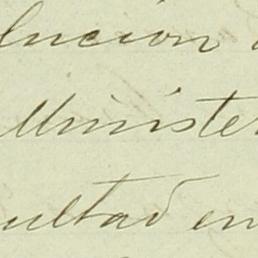 lucion
Minister
ultad en